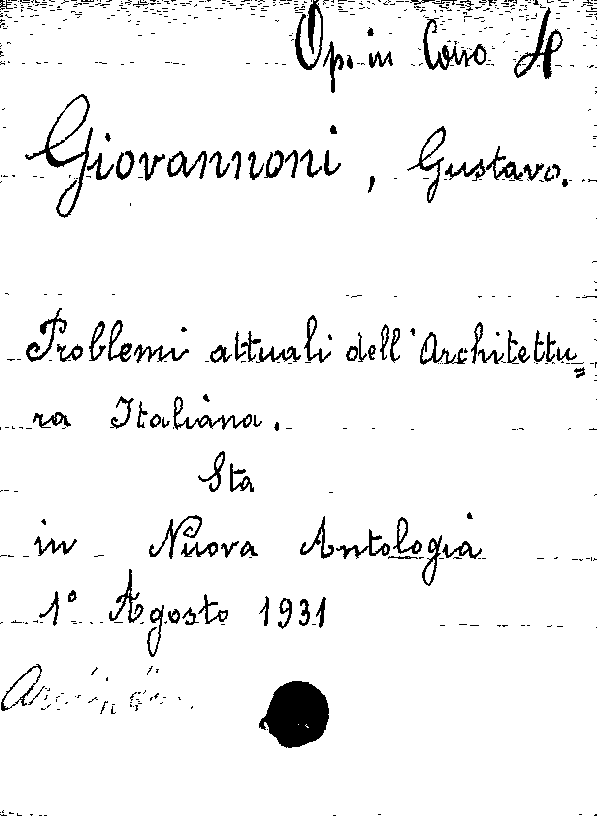 Op. in Corso H
Giovannoni, Gustavo.
Problemi attuali dell'Architettu=
ra Italiana.
Sta
in Nuova Antologia
1° Agosto 1931